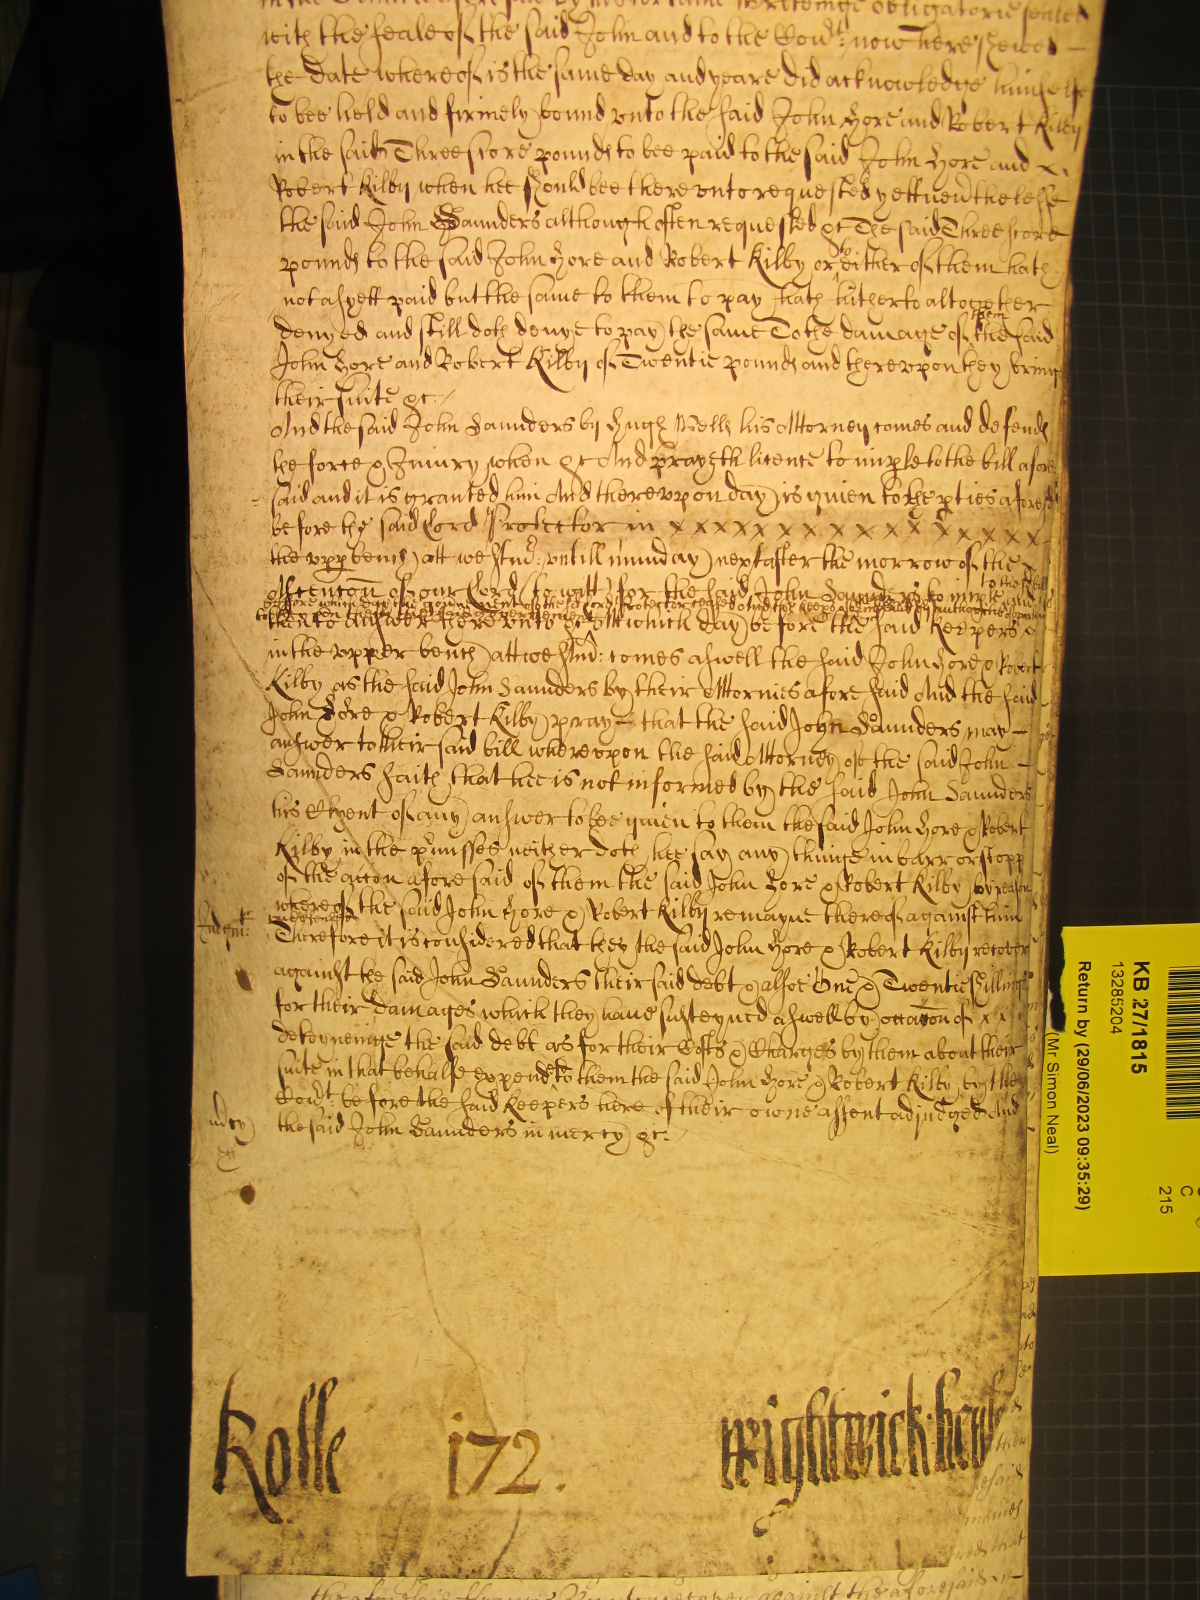 with the seale of the said John and to the Cowrt now here shewed
the date whereof is the same day and yeare did acknowledge himselfe
to bee held and firmely bound vnto the said John Hore and Robert Kilby
in the said Threescore pounds to bee paid to the said John Hore and x.
Robert Kilby when hee should bee therevnto requested yett neuertheless
the said John Saunders although often requested &c The said Threescore
pounds to the said John Hore and Robert Kilby or to either of them hath
not as yett paid but the same to them to pay hath hitherto altogether
denyed and still doth denye to pay the same To the damage of them the said
John Hore and Robert Kilby of Twentie pounds and therevpon they bring
their suite &c:
And the said John Saunders by Hugh Wells his Attorney comes and defends
the force & Iniury when &c And prayeth licence to imple to the bill afore
said and it is granted him And therevpon day is giuen to the pties aforesd
before the said Lord Protector in x x x x x x x x x x x x x x x
the vpp bench att westmr: vntill munday next after the morrow of the
Ascencon of our Lord (to witt) for the said John Saunders to imple to the bill and
then to answer herevnto &c Att which day before the said Keepers &
in the vpper bench att westmr: comes aswell the said John Hore & Robert
Kilby as the said John Saunders by their Attornies aforesaid And the said
John Hore & Robert Kilby pray that the said John Saunders may
answer to their said bill wherevpon the said Attorney of the said John
Saunders saith that hee is not informed by the said John Saunders
his Clyent of any answer to bee giuen to them the said John Hore & Robert
Kilby in the pmisses neither doth hee say any thinge in barr or stopp
of the accon aforesaid of them the said John Hore & Robert Kilby by reason
whereof the said John Hore & Robert Kilby remayne thereof against him
vndefended
Judgmt: Therefore it is considered that they the said John Hore & Robert Kilby recover
against the said John Saunders their said debt & alsoe One & Twentie shillings
for their damages which they haue susteyned aswell by occacon of x x
deteyneinge the said debt as for their Costs & Charges by them about their
suite in that behalfe expended to them the said John Hore & Robert Kilby by the
Cowrt before the said Keepers here of their owne assent adjudged And
mcy the said John Saunders in mercy &c.
Rolle 172. Wightwick
KB 27/1815
13285204
Return by (29/06/2023 09:35:29)
(Mr Simon Neal)
C
215